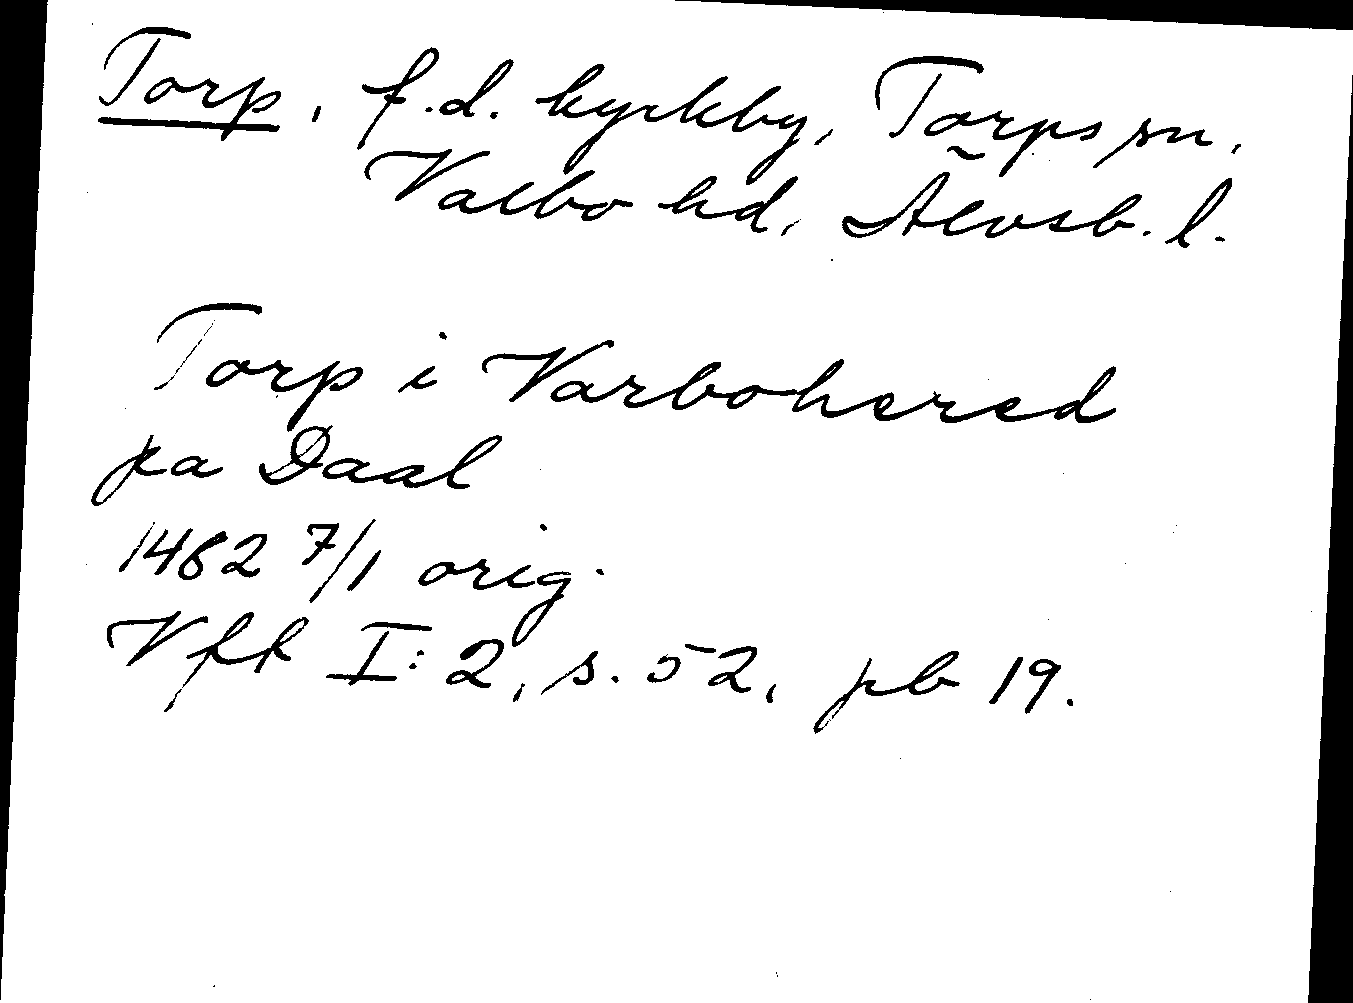 Torp, f.d. kyrkby, Torps sn,
Valbo hd, Älvsb. l.
Torp i Varbohered
pa Daal
1482 7/1 orig.
Vfk I:2, s. 52, pb 19.